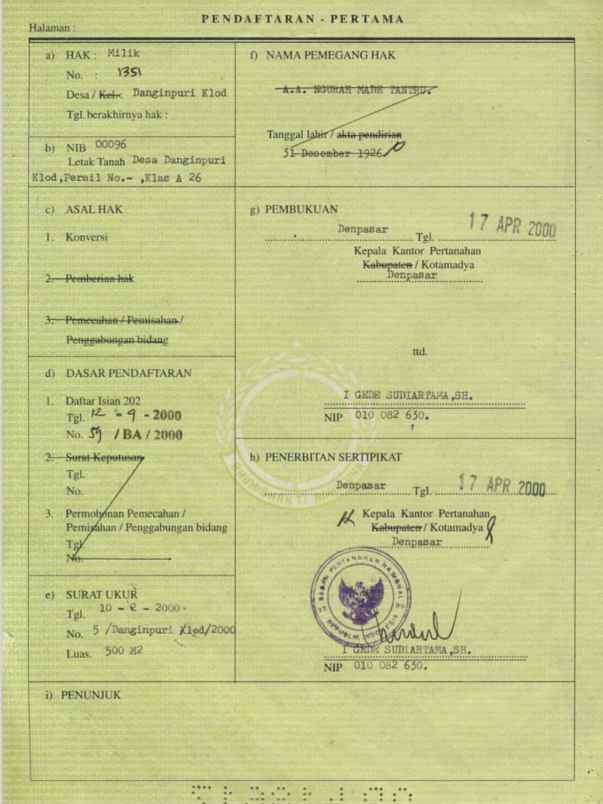 PENDAFTARAN - PERTAMA
Halaman :
a) HAK : Milik
No. : 1351
Desa / Kel.: Danginpuri Klod
Tgl. berakhirnya hak :
b) NIB 00096
Letak Tanah Desa Danginpuri
Klod,Persil No.- ,Klas A 26
c) ASAL HAK
1. Konversi
2. Pemberian hak
3. Pemecahan / Pemisahan /
Penggabungan bidang
d) DASAR PENDAFTARAN
1. Daftar Isian 202
Tgl. 12 - 9 - 2000
No. 59 / BA / 2000
2. Surat Keputusan
Tgl.
No.
3. Permohonan Pemecahan /
Pemisahan / Penggabungan bidang
Tgl.
No.
e) SURAT UKUR
Tgl. 10 - 2 - 2000.
No. 5 /Danginpuri Klod/2000
Luas. 500 M2
f) NAMA PEMEGANG HAK
A.A. NGURAH MADE PANTRU.
Tanggal lahir / akta pendirian
31 Desember 1926
g) PEMBUKUAN
Denpasar Tgl. 17 APR 2000
Kepala Kantor Pertanahan
Kabupaten / Kotamadya
Denpasar
ttd.
I GEDE SUDIARTAMA,SH.
NIP 010 082 630.
h) PENERBITAN SERTIPIKAT
Denpasar Tgl. 17 APR 2000
Kepala Kantor Pertanahan
Kabupaten / Kotamadya
Denpasar
BADAN PERTANAHAN NASIONAL
REPUBLIK INDONESIA
I GEDE SUDIARTAMA,SH.
NIP 010 082 630.
i) PENUNJUK